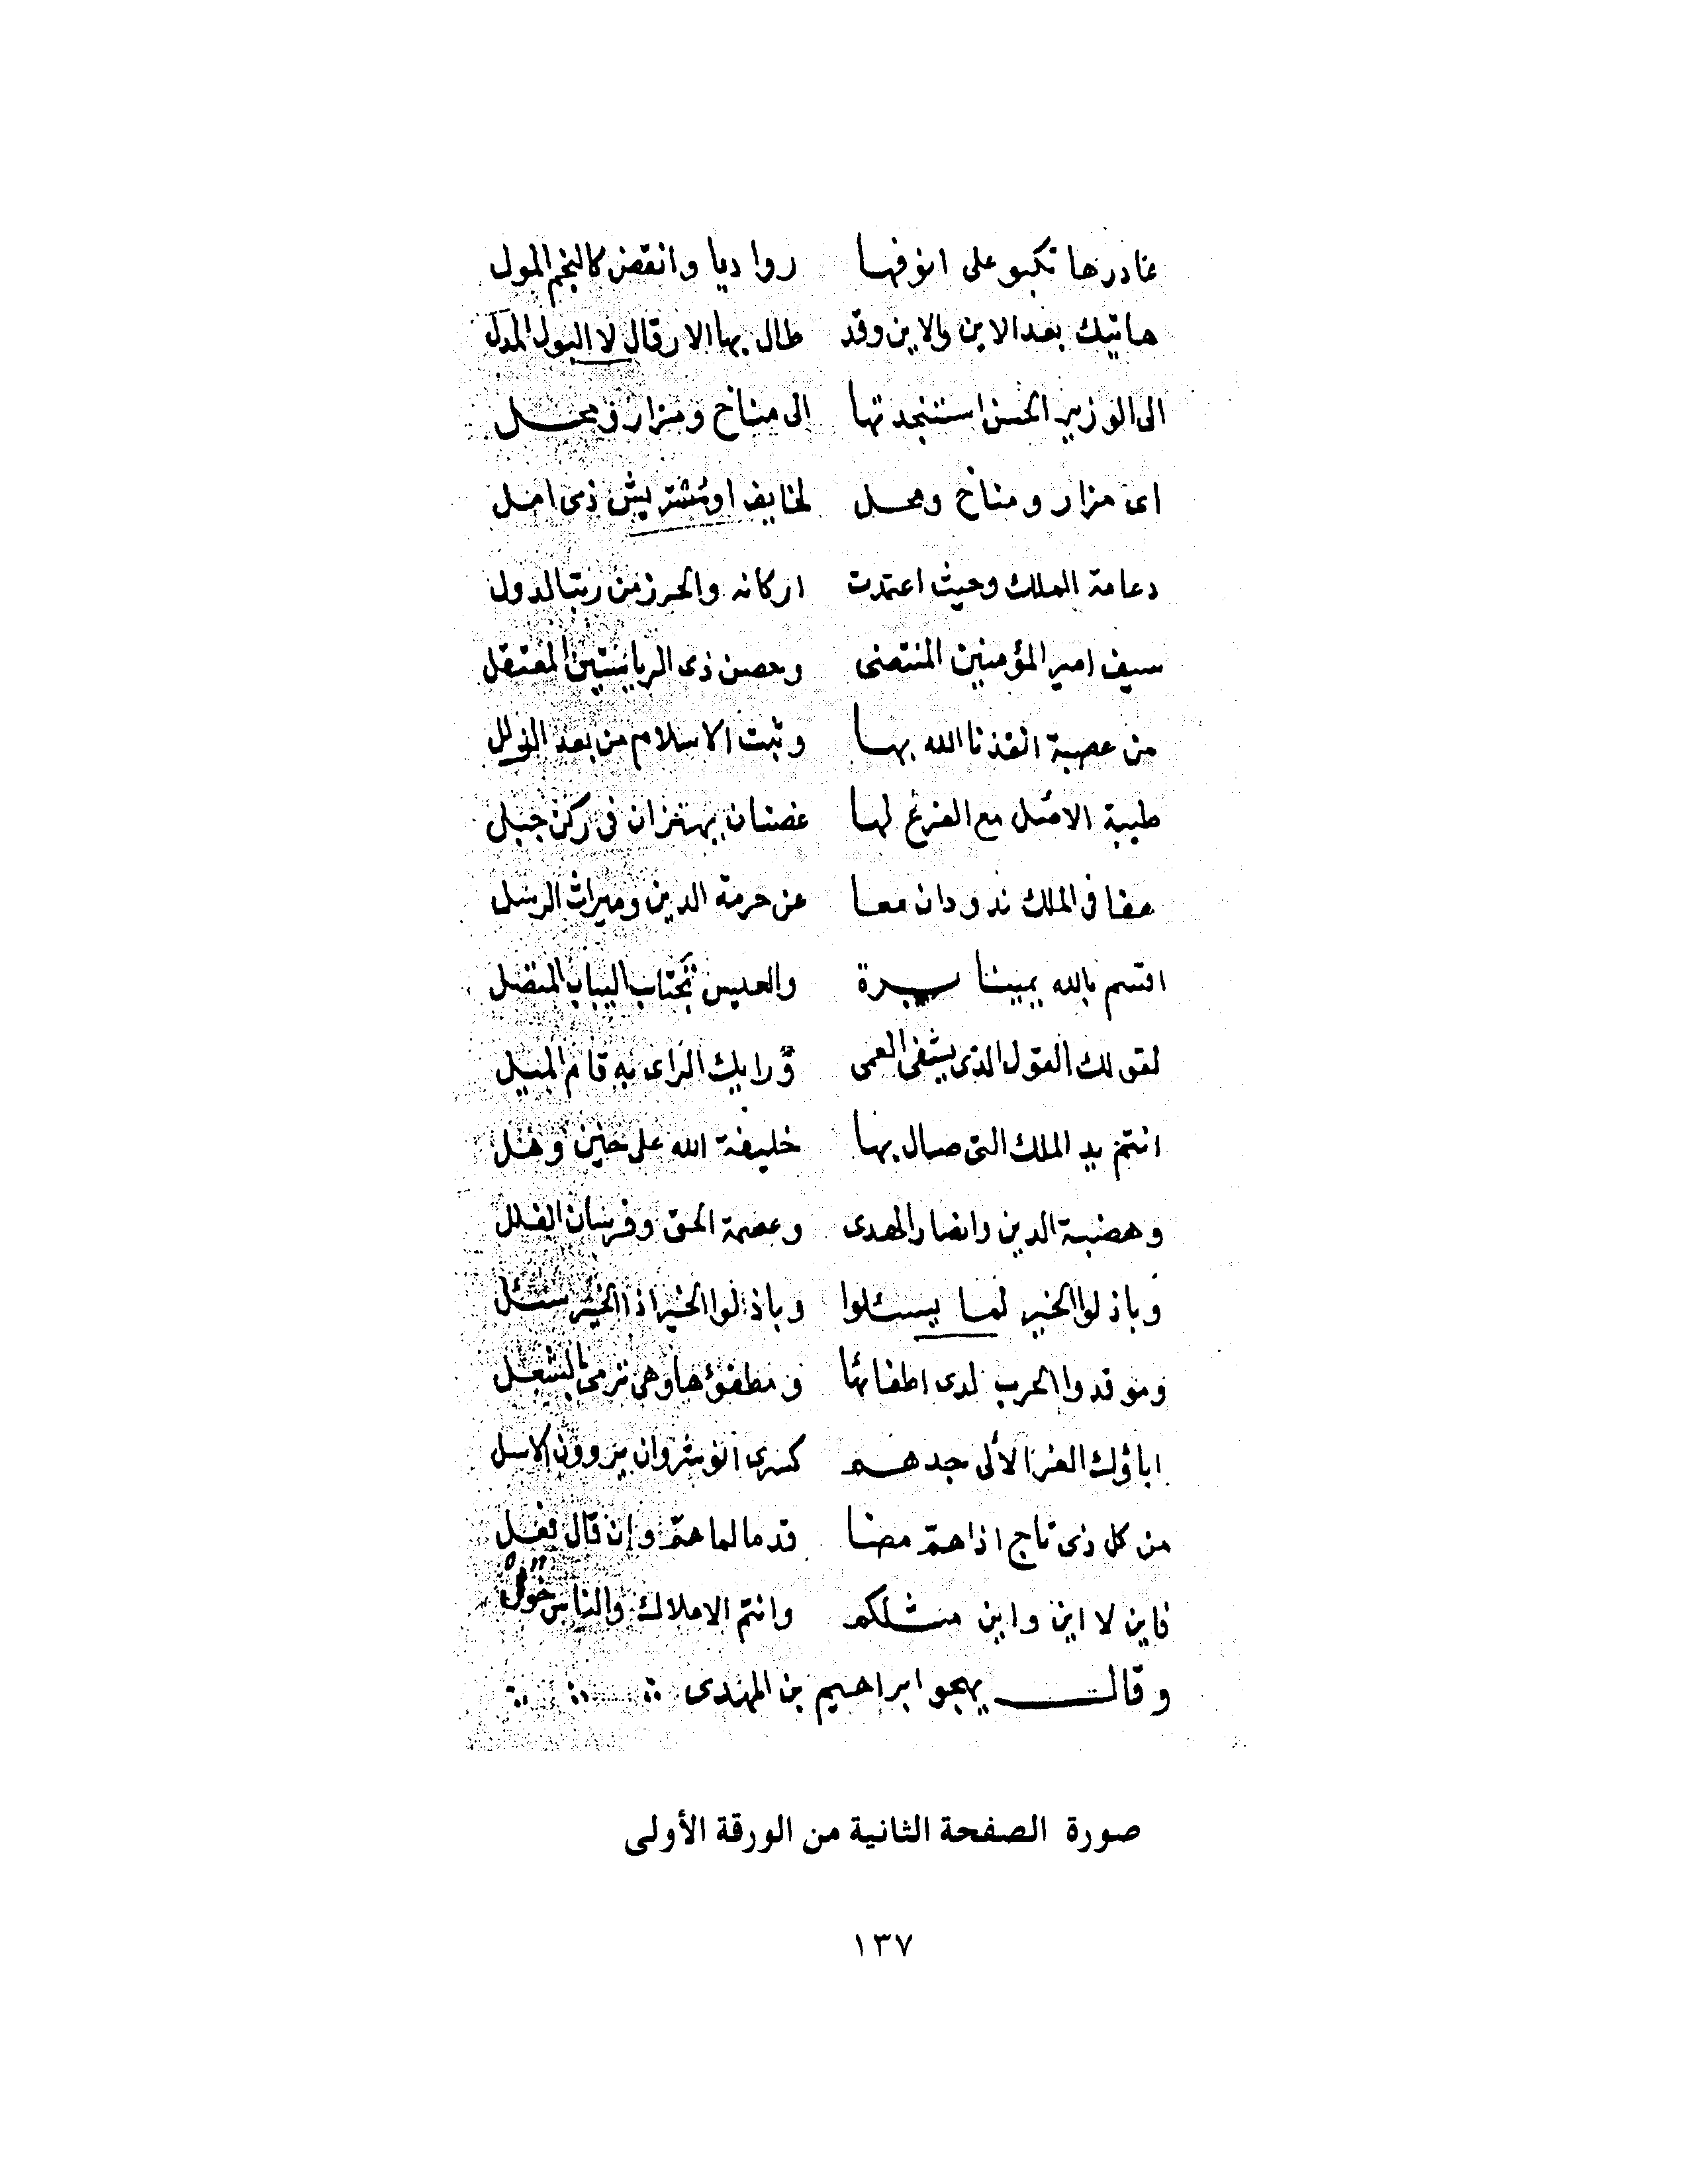 غادرها تكبو على انوفها روا ديا وانقض كالنجم المول
هاتيك بعد الاين والاين وقد طال بها الارقال لا البول المدل
الى الوزير الحسن استنجدتها الى مناخ ومزار ومحل
اى مزار ومناخ ومحل لخايف اومشتريش ذى امل
دعامة الملك وحيث اعتمدت اركانه والحرز من ريب الدول
سيف امير المؤمنين المنتضى وحصن ذى الرياستين المعتقل
من عصبة انقذنا الله بها وثبت الاسلام من بعد الزلل
طيبة الاصل مع الفرع لها غصنان يهتزان فى ركن جبل
هما فى الملك تذودان معا عن حرمة الدين وميراث الرسل
اقسم بالله يمينا برة والعيس تجتاب اليباب
لقولك القول الذى يشفى العمى ورايك الراى به قام الميل
انتم يد الملك التى صال بها خليفة الله على حين وهل
وهضبة الدين وانصار الهدى وعصمة الحق وفرسان القلل
وباذلوا الخير لما يسئلوا وباذلوا الخير اذا الخير سئل
وموقدوا الحرب لدى اطفائها ومطفؤها وهى ترمى بالشعل
اباؤك الغر الالى جدهم كسرى انوشروان يروون الاسل
من كل ذى تاج اذا هم مضا قدما لما هم وان قال فعل
فاين لا اين واين مثلكم وانتم الاملاك والناس خول
وقال يهجو ابراهيم بن المهدى
صورة الصفحة الثانية من الورقة الأولى
١٣٧